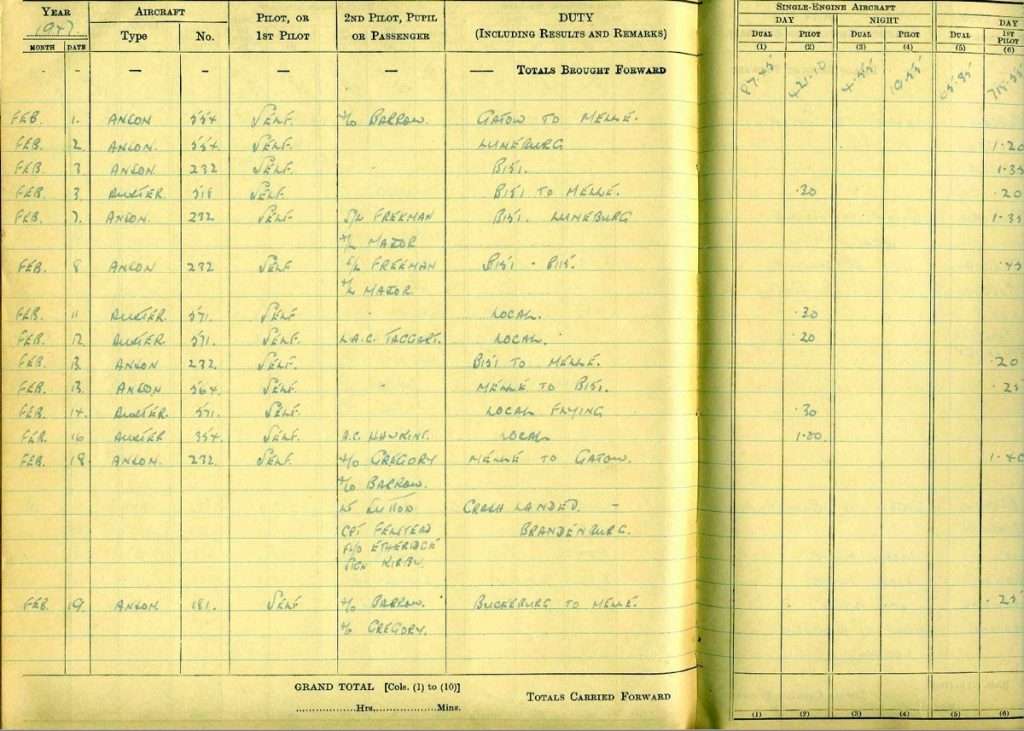 YEAR AIRCRAFT PILOT, OR 2ND PILOT, PUPIL DUTY SINGLE-ENGINE AIRCRAFT
1947 1ST PILOT OR PASSENGER (INCLUDING RESULTS AND REMARKS) DAY NIGHT DAY
MONTH DATE Type No. DUAL PILOT DUAL PILOT DUAL 1ST PILOT
(1) (2) (3) (4) (5) (6)
- - — - — — — TOTALS BROUGHT FORWARD 87.45 421.10 4.55 10.55
FEB. 1. ANSON 554 SELF. BARROW. GATOW TO MELLE.
FEB. 2 ANSON. 554 SELF. LUNEBURG 1.20
FEB. 3 ANSON 232 SELF. - B151. 1.35
FEB. 3. AUSTER 518 SELF. B151 TO MELLE. .20 .20
FEB. 7. ANSON. 232 SELF. S/L FREEMAN B151. LUNEBURG 1.35
F/L MAZOR
FEB. 8 ANSON 232 SELF FREEMAN B151 - B115. .45
F/L MAZOR.
FEB. 11 AUSTER. 571. SELF - LOCAL. .30
FEB. 12 AUSTER. 571. SELF. L.A.C. TAGGART. LOCAL. .20
FEB. 13. ANSON 232. SELF. B151 TO MELLE. .20
FEB. 13. ANSON 564. SELF. - MELLE TO B151. .25
FEB. 14. AUSTER. 571. SELF. LOCAL FLYING .30
FEB. 16 AUSTER 354. SELF. A.C. HAWKINS. LOCAL 1.20
FEB. 18. ANSON. 232. SELF. GREGORY MELLE TO GATOW. 1.40
BARROW.
CRASH LANDED. -
CPT FELSTEAD BRANDENBURG.
F/O ETHERIDGE
KIRBY.
FEB. 19. ANSON 181. SELF BARROW. BUCKEBURG TO MELLE. .25
GREGORY.
GRAND TOTAL [Cols. (1) to (10)] TOTALS CARRIED FORWARD
..................Hrs..................Mins.
(1) (2) (3) (4) (5) (6)